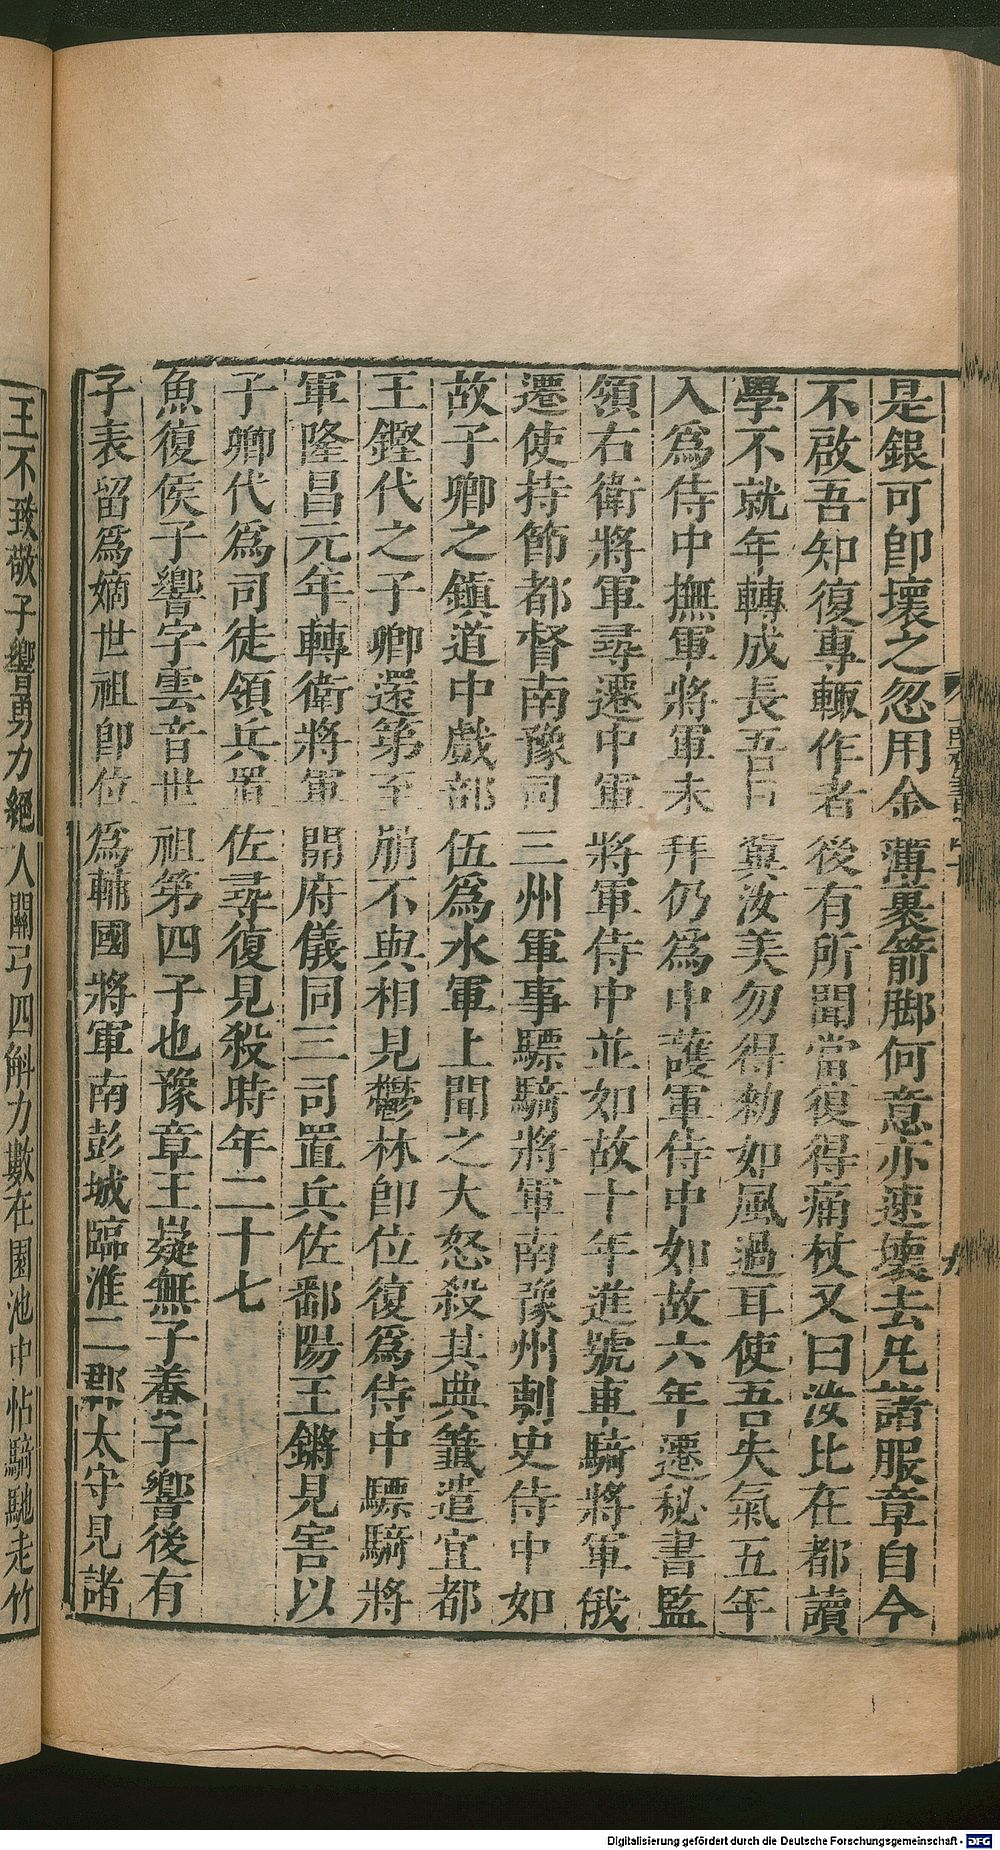 是銀可卽壞之忽用金薄裹箭脚何意亦速壞去凡諸服章自今
不啟吾知復專輒作者後有所聞當復得痛杖又曰汝比在都讀
學不就年轉成長吾日冀汝美勿得勑如風過耳使吾失氣五年
入爲侍中撫軍將軍未拜仍爲中護軍侍中如故六年遷秘書監
領右衛將軍尋遷中軍將軍侍中並如故十年進號車騎將軍俄
遷使持節都督南豫司三州軍事驃騎將軍南豫州刺史侍中如
故子卿之鎮道中戲部伍爲水軍上聞之大怒殺其典籤遣宜都
王鏗代之子卿還第至崩不與相見鬱林卽位復爲侍中驃騎將
軍隆昌元年轉衛將軍開府儀同三司置兵佐鄱陽王鏘見害以
子卿代爲司徒領兵置佐尋復見殺時年二十七
魚復侯子響字雲音世祖第四子也豫章王嶷無子養子響後有
子表留爲嫡世祖卽位爲輔國將軍南彭城臨淮二郡太守見諸
王不致敬子響勇力絕人關弓四斛力數在園池中帖騎馳走竹
九
Digitalisierung gefördert durch die Deutsche Forschungsgemeinschaft - DFG